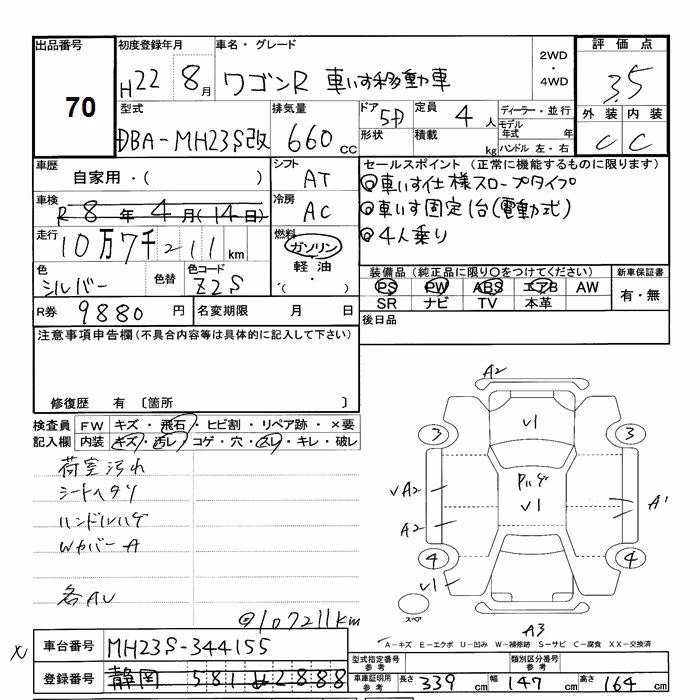 出品番号
70
初度登録年月
H22 8月
車名・グレード
ワゴンR 車いす移動車
2WD
・
4WD
評価点
3.5
外装 内装
C C
型式
DBA-MH23S改
排気量
660 cc
ドア 5D
形状
定員 4人
積載 kg
ディーラー・並行
モデル年式 年
ハンドル 左・右
車歴
自家用・( )
車検
R 8年 4月(14日)
走行
10万7千211km
色
シルバー
色替
色コード
Z2S
シフト
AT
冷房
AC
燃料
ガソリン
軽油
・( )
セールスポイント(正常に機能するものに限ります)
◎車いす仕様スロープタイプ
◎車いす固定台(電動式)
◎4人乗り
装備品(純正品に限り○をつけてください)
PS PW ABS エアB AW
SR ナビ TV 本革
新車保証書
有・無
R券 9880円
名変期限 月 日
後日品
注意事項申告欄(不具合内容等は具体的に記入して下さい)
修復歴 有 〔箇所 〕
検査員記入欄
FW キズ・飛石・ヒビ割・リペア跡・×要
内装 キズ・汚レ・コゲ・穴・スレ・キレ・破レ
荷室汚れ
シートヘタリ
ハンドルハゲ
WカバーA
各AU
◎107211km
A2
V1
3 3
Pハゲ
V1
VA2
A2
A1
4 4
V1
スペア
A3
A-キズ E-エクボ U-凹み W-補修跡 S-サビ C-腐食 XX-交換済
車台番号 MH23S-344155
登録番号 静岡 581 め2888
型式指定番号 参考
類別区分番号 参考
車庫証明用 参考
長さ 339 cm 幅 147 cm 高さ 164 cm